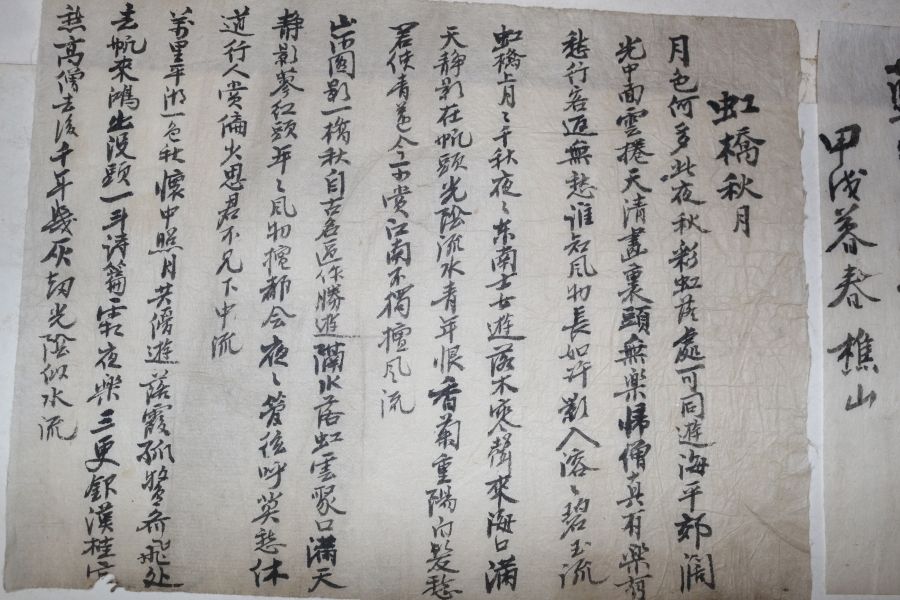 甲戌暮春 樵山
虹橋秋月
月色何多此夜秋彩虹落處可同遊海平郊濶
光中面雲捲天清畫裏頭無樂歸僧真有樂有
愁行客迥無愁誰知風物長如許影入溶〻碧玉流
虹橋上月〻千秋夜〻东南士女遊落木寒聲來海口滿
天靜影在帆頭光陰流水青年恨香菊重陽白髮愁
若使青蓮今賞江南不獨擅風流
圓影一橋秋自古名區作勝遊隔水落虹雲聚口滿天
静影蓼紅頭年〻風物擅都会夜〻管弦呼莫愁休
道行人賞倫火思君不见下中流
萬里平湖一色秋懷中照月共傍遊落霞孤鶩齐飛处
去帆來鴻出没頭一斗诗篇霜夜樂三更銀漢桂宮
愁高僧去後千年幾灰劫光陰似水流